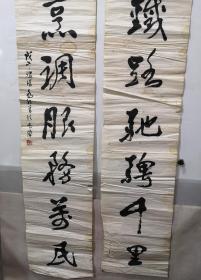 鐵路馳騁千里
烹調服務萬民